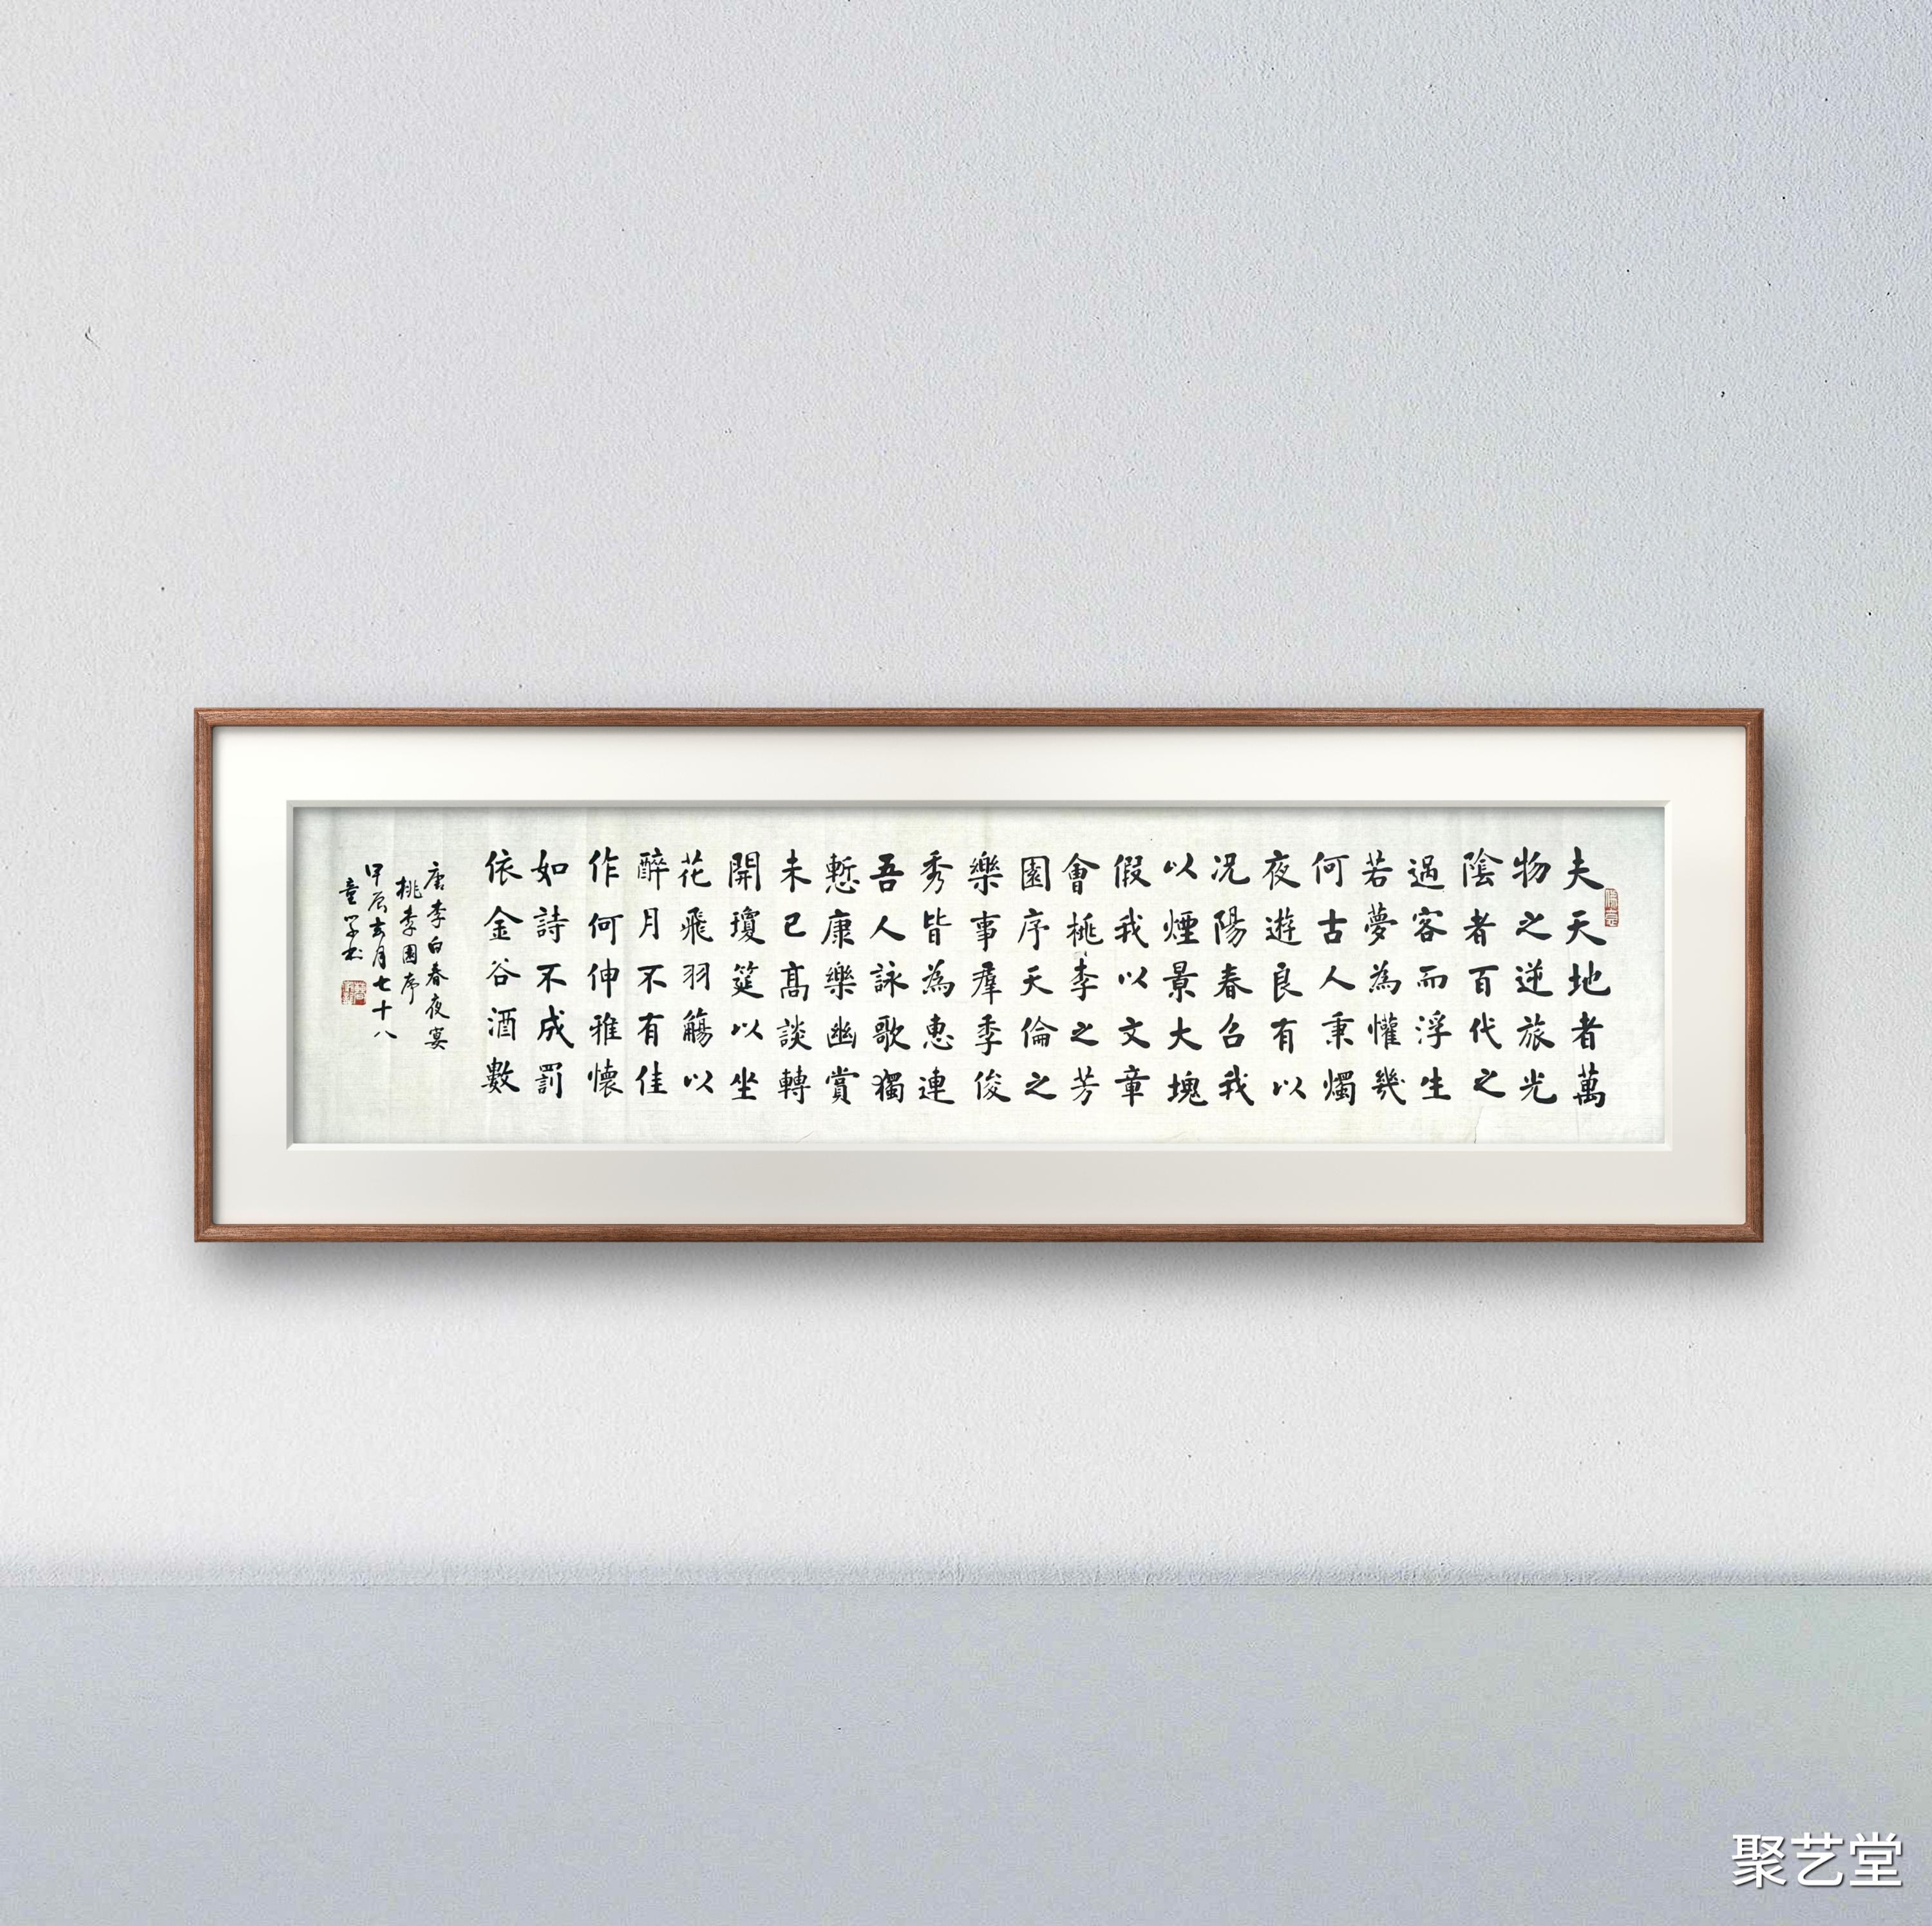 夫天地者萬
物之逆旅光
陰者百代之
過客而浮生
若夢為懽幾
何古人秉燭
夜遊良有以
况陽春召我
以煙景大塊
假我以文章
會桃李之芳
園序天倫之
樂事羣季俊
秀皆為惠連
吾人詠歌獨
慙康樂幽賞
未已高談轉
開瓊筵以坐
花飛羽觴以
醉月不有佳
作何伸雅懷
如詩不成罰
依金谷酒數
唐李白春夜宴
桃李園序
甲辰玄月七十八
童 书
聚艺堂